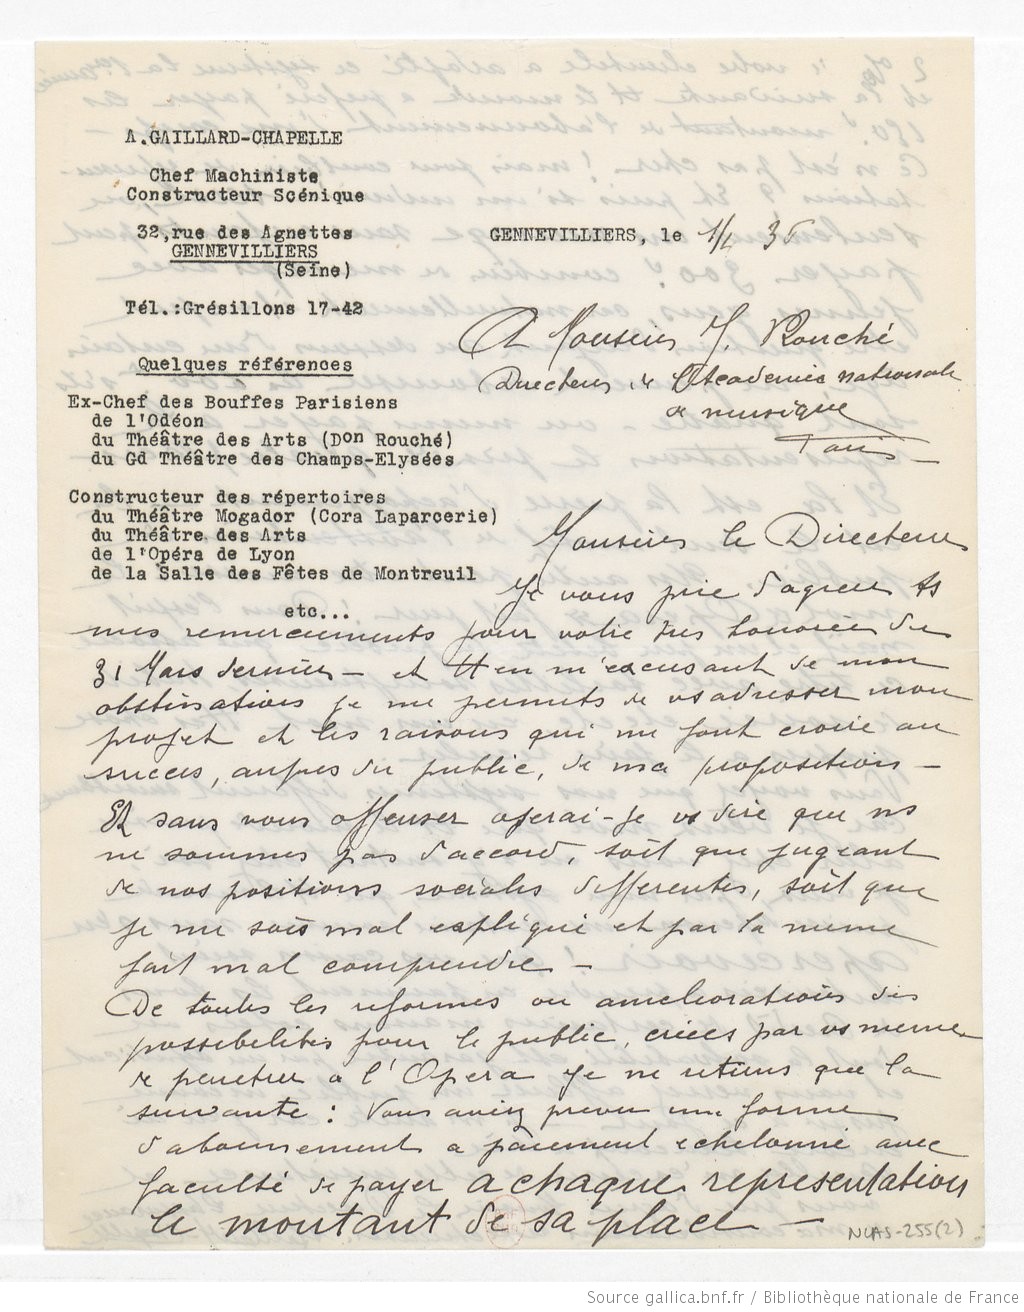 A. GAILLARD-CHAPELLE
Chef Machiniste
Constructeur Scénique
32, rue des Agnettes
GENNEVILLIERS
(Seine)
Tél.:Grésillons 17-42
GENNEVILLIERS, le
A Monsieur J. Rouché
Directeur de l'Academie nationale
de musique
Paris
Quelques références
Ex-Chef des Bouffes Parisiens
de l'Odéon
du Théâtre des Arts (Don Rouché)
du Gd Théâtre des Champs-Elysées
Constructeur des répertoires
du Théâtre Mogador (Cora Laparcerie)
du Théâtre des Arts
de l'Opéra de Lyon
de la Salle des Fêtes de Montreuil
etc...
Monsieur le Directeur
Je vous prie d'agreer ts
mes remerciements pour votre tres honorée du
31 Mars dernier — et en m'excusant de mon
obstination je me permets de vs adresser mon
projet et les raisons qui me font croire au
succes, aupres du public, de ma proposition —
Et sans vous offenser oserai-je vs dire que ns
ne sommes pas d'accord, soit que jugeant
de nos positions sociales differentes, soit que
je me sois mal expliqué et par la meme
fait mal comprendre —
De toutes les reformes ou ameliorations des
possibilités pour le public, créées par vs meme
de penetrer a l'Opera je ne retiens que la
suivante : Vous aviez prevu une forme
d'abonnement a paiement echelonné avec
faculté de payer a chaque representation
le montant de sa place —
NLAS-255(2)
Source gallica.bnf.fr / Bibliothèque nationale de France